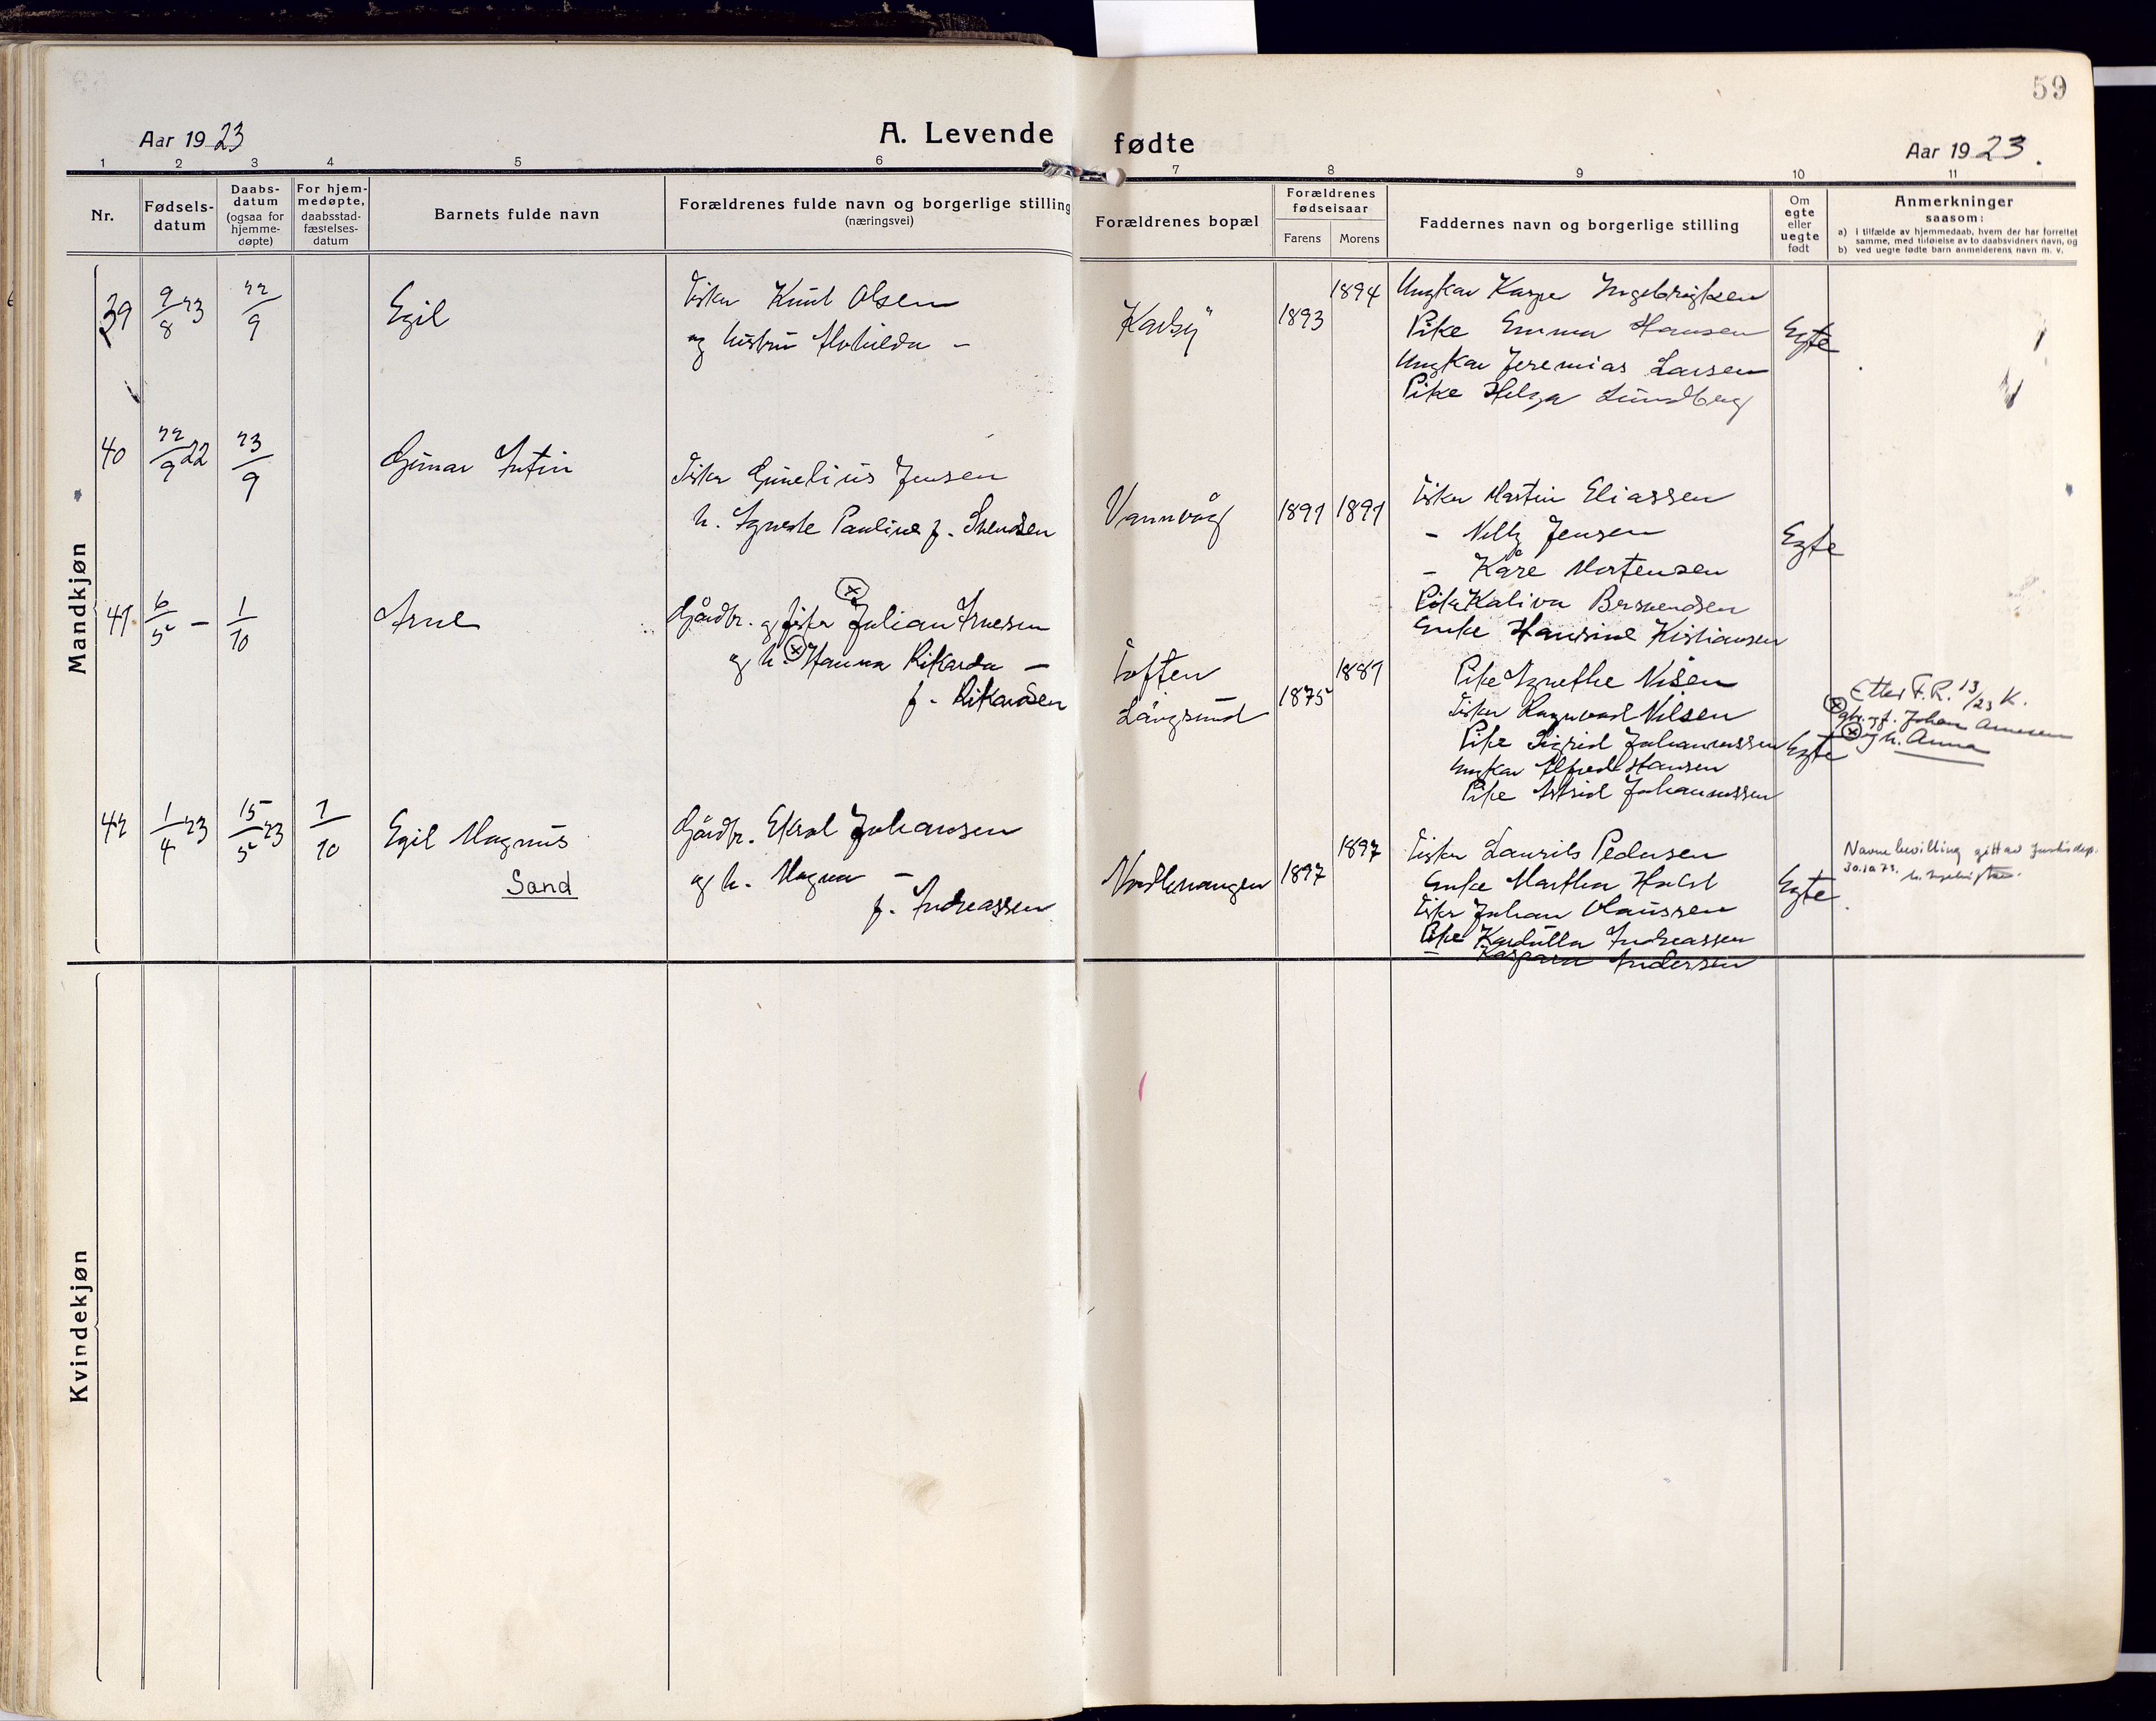 59
Aar 1923
A. Levende fødte
Aar 1923.
1 2 3 4 5 6 7 8 9 10 11
Nr.
Fødsels-
datum
Daabs-
datum
(ogsaa for
hjemme-
døpte)
For hjem-
medøpte,
daabsstad-
fæstelses-
datum
Barnets fulde navn
Forældrenes fulde navn og borgerlige stilling
(næringsvei)
Forældrenes bopæl
Forældrenes
fødselsaar
Farens Morens
Faddernes navn og borgerlige stilling
Om
egte
eller
uegte
født
Anmerkninger
saasom:
a) i tilfælde av hjemmedaab, hvem der har forrettet
samme, med tilføielse av to daabsvidners navn, og
b) ved uegte fødte barn anmelderens navn m. v.
Mandkjøn
39 9/8 23 22/9 Egil
Fisker Knut Olsen
og hustru Mathilda –
1893 1894
Ungkar Kaspe Ingebrigtsen
Pike Emma Hansen
Ungkar Jeremias Larsen
Pike Helga Lundberg
Egte
40 22/9 22 23/9 Gunar
Fisker Gunelius Jensen
h. Agnete Pauline f. Svendsen
Vannvåg 1891 1891
Fisker Martin Eliassen
– Nelly Jensen
– Kåre Mortensen
Pike Kaliva Bersvendsen
Enke Hansine Kristiansen
Egte
41 6/5 – 1/10 Arne
Gårdbr. og fisker Julian Arnesen
og h. Hanna Rikarda –
f. Rikardsen
Toften
Langsund
1875 1881
Pike Agnethe Nilsen
Fisker Ragnvald Nilsen
Pike Sigrid Johannessen
Ungkar Alfred Hansen
Pike Astrid Johannessen
Egte
Etter F.R. 13/23 K.
gbr. og f. Johan Arnesen
og h. Anna
42 1/4 23 15/5 23 7/10 Egil Magnus
Sand
Gårdbr. Johansen
og h. Magna –
f. Andreassen
Nordlenangen 1897 1897
Fisker Laurits Pedersen
Enke Martha Holst
Fisker Johan Olaussen
Pike Andreassen
– Kaspara Andersen
Egte
Navnebevilling gitt av Justisdep.
30.10.73.
Kvindekjøn